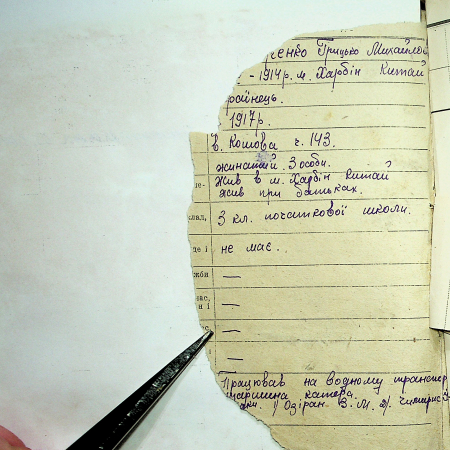 енко Грицько Михайлов
- 1914 р. м. Харбін Китай
раїнець.
1917 р.
в. Комова ч. 143.
жинатий. 3 особи.
Жив в м. Харбін Китай
жив при батьках.
3 кл. початкової школи.
не має.
—
—
—
—
Працював на водному транспор
старшина катера.
1) Озіран В. М. 2)